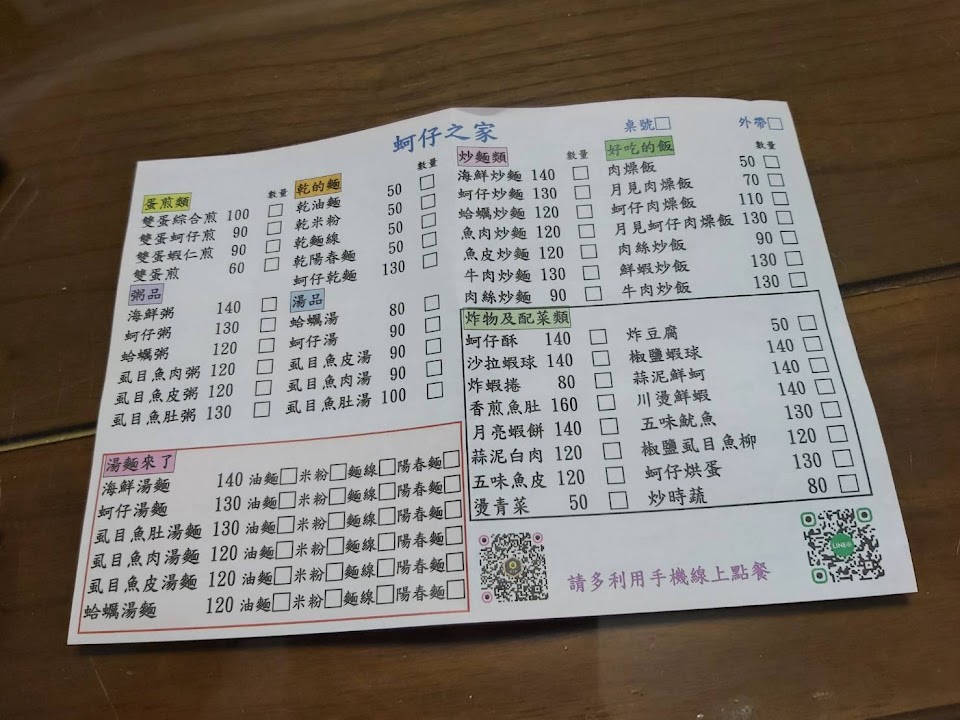 蚵仔之家
桌號□ 外帶□
蛋煎類 數量
雙蛋綜合煎 100 □
雙蛋蚵仔煎 90 □
雙蛋蝦仁煎 90 □
雙蛋煎 60 □
粥品
海鮮粥 140 □
蚵仔粥 130 □
蛤蠣粥 120 □
虱目魚肉粥 120 □
虱目魚皮粥 120 □
虱目魚肚粥 130 □
乾的麵 數量
乾油麵 50 □
乾米粉 50 □
乾麵線 50 □
乾陽春麵 50 □
蚵仔乾麵 130 □
湯品
蛤蠣湯 80 □
蚵仔湯 90 □
虱目魚皮湯 90 □
虱目魚肉湯 90 □
虱目魚肚湯 100 □
湯麵來了
海鮮湯麵 140 油麵□米粉□麵線□陽春麵□
蚵仔湯麵 130 油麵□米粉□麵線□陽春麵□
虱目魚肚湯麵 130 油麵□米粉□麵線□陽春麵□
虱目魚肉湯麵 120 油麵□米粉□麵線□陽春麵□
虱目魚皮湯麵 120 油麵□米粉□麵線□陽春麵□
蛤蠣湯麵 120 油麵□米粉□麵線□陽春麵□
炒麵類 數量
海鮮炒麵 140 □
蚵仔炒麵 130 □
蛤蠣炒麵 120 □
魚肉炒麵 120 □
魚皮炒麵 120 □
牛肉炒麵 130 □
肉絲炒麵 90 □
好吃的飯 數量
肉燥飯 50 □
月見肉燥飯 70 □
蚵仔肉燥飯 110 □
月見蚵仔肉燥飯 130 □
肉絲炒飯 90 □
鮮蝦炒飯 130 □
牛肉炒飯 130 □
炸物及配菜類
蚵仔酥 140 □
沙拉蝦球 140 □
炸蝦捲 80 □
香煎魚肚 160 □
月亮蝦餅 140 □
蒜泥白肉 120 □
五味魚皮 120 □
燙青菜 50 □
炸豆腐 50 □
椒鹽蝦球 140 □
蒜泥鮮蚵 140 □
川燙鮮蝦 140 □
五味魷魚 130 □
椒鹽虱目魚柳 120 □
蚵仔烘蛋 130 □
炒時蔬 80 □
請多利用手機線上點餐
LINE